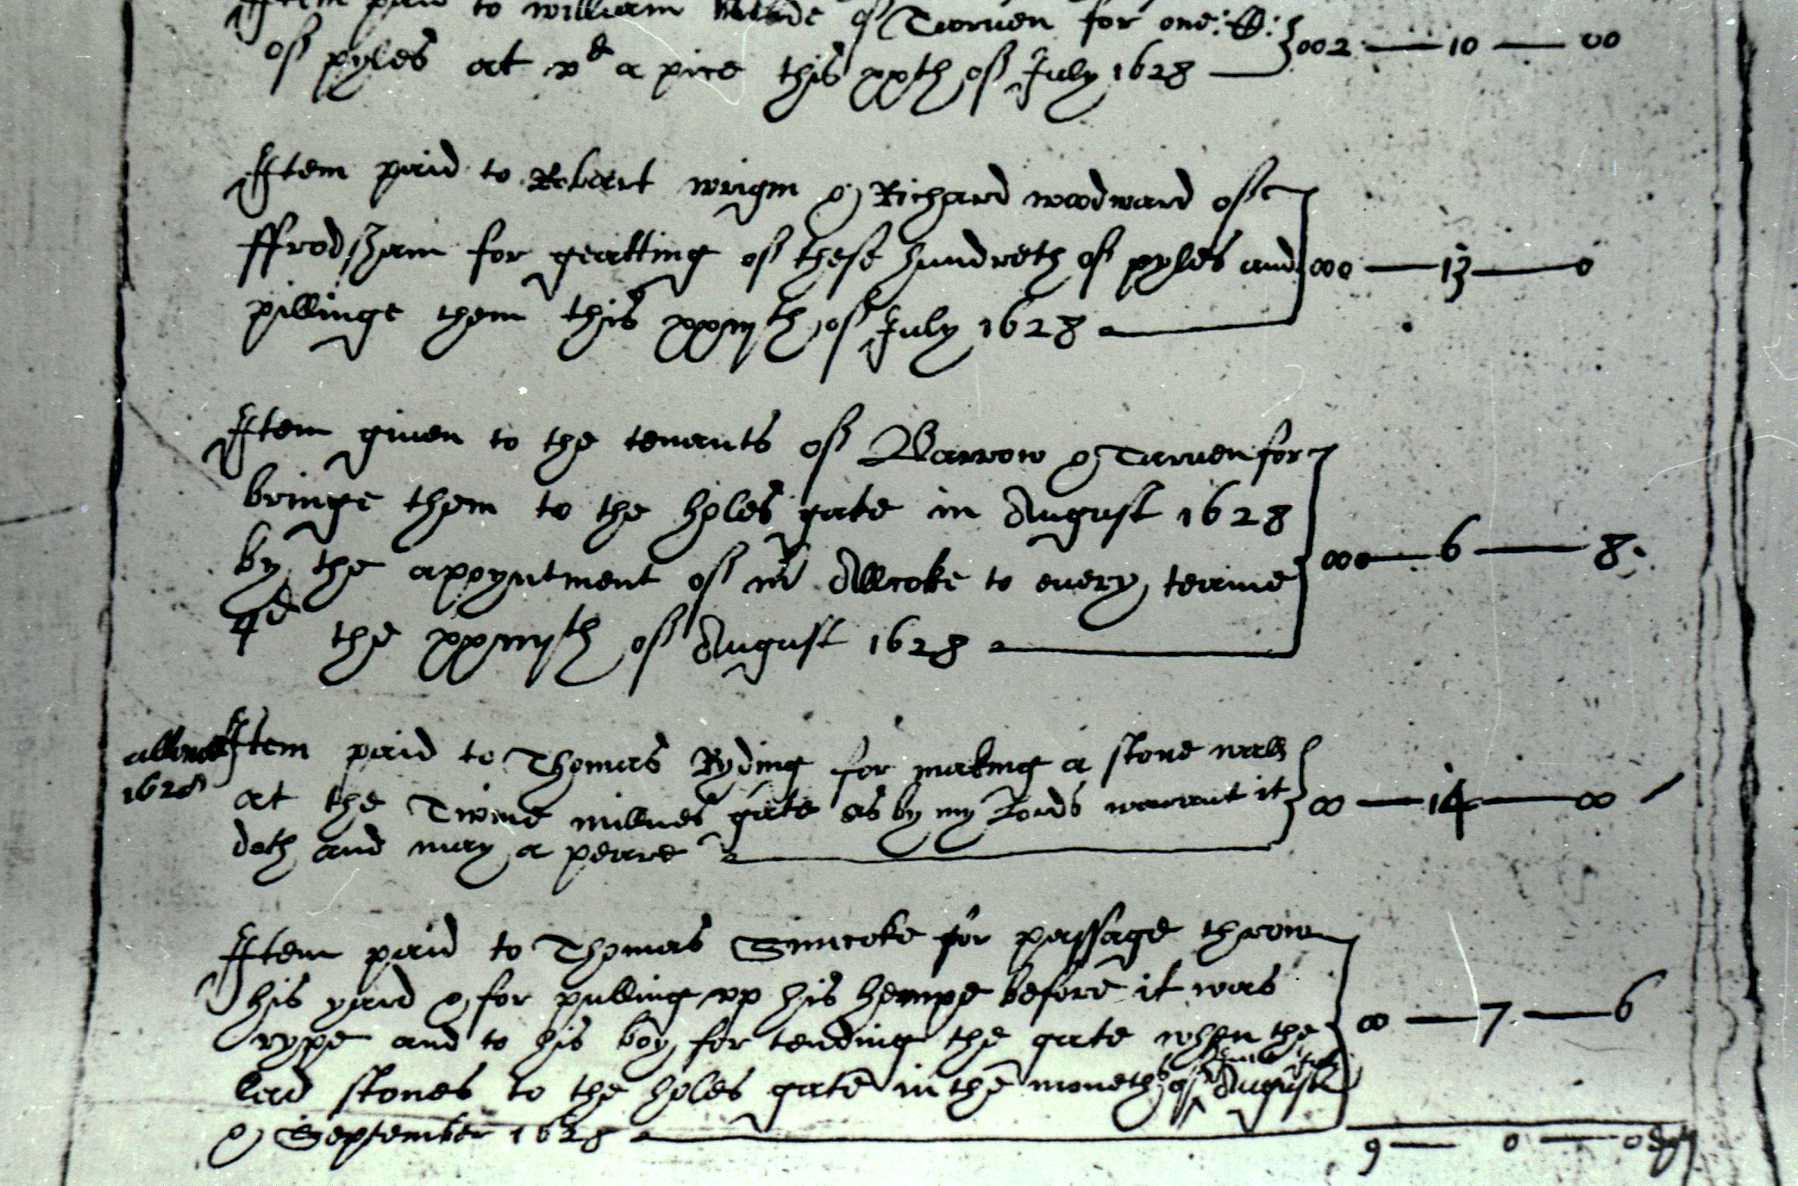 Item paid to william of Tarven for one: C:
of pyles at vd a pice this xxth of July 1628 002 — 10 — 00
Item paid to Robart wrigm & Richard woodward of
ffrodsham for geatting of these hundreth of pyles and 000 — 13 — 0
pillinge them this of July 1628
Item given to the tenants of Barrow & Tarven for
bringe them to the holes gate in August 1628
by the apoyntment of mr Allcoke to every teame 000 — 6 — 8
4d the of August 1628
allowed Item paid to Thomas Ryding for making a stone wall
1628 at the Twine millnes gate as by my Lords warrant it 00 — 14 — 00
doth and may a peare
Item paid to Thomas Simcoke for passage throw
his yard & for pulling up his hempe before it was
rype and to his boy for tending the gate when the 00 — 7 — 6
lad stones to the holes gate in the moneths of June July August
& September 1628
9 — 0 — 0